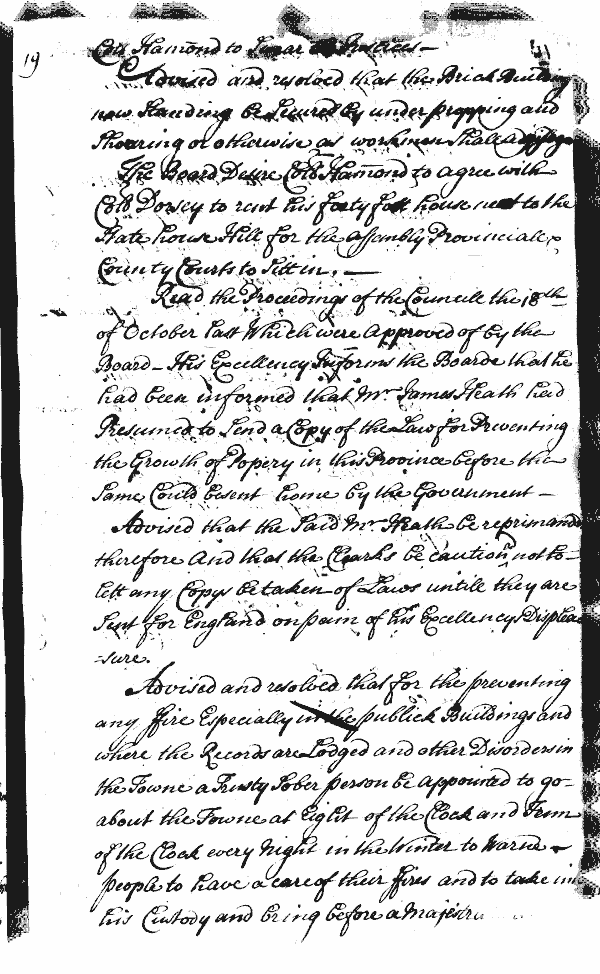 19
Coll Hamond to Justices —
Advised and resolved that the Brick Building
now standing be secured by under propping and
Shoaring or otherwise as workmen shall
The Board Desire Coll Hamond to agree with
Coll Dorsey to rent his forty foot house next to the
State house Hill for the Assembly Provinciale
County Courts to Sitt in. —
Read the Proceedings of the Councill the 18th
of October last Which were approved of by the
Board — His Excellency Informs the Boarde that he
had been informed that Mr James Heath had
Presumed to Send a Copy of the Law for Preventing
the Growth of Popery in this Province before the
Same Could be sent home by the Government —
Advised that the Said Mr Heath be reprimand
therefore And that the Clearks be caution'd not to
lett any Copys be taken of Laws untill they are
Sent for England on pain of his Excellencys Displea
-sure.
Advised and resolved that for the preventing
any ffire Especially in the publick Buildings and
where the Records are Lodged and other Disorders in
the Towne a Trusty Sober person be appointed to go
about the Towne at Eight of the Clock and Tenn
of the Clock every Night in the Winter to Warne
people to have a care of their ffires and to take in
his Custody and bring before a Majestra